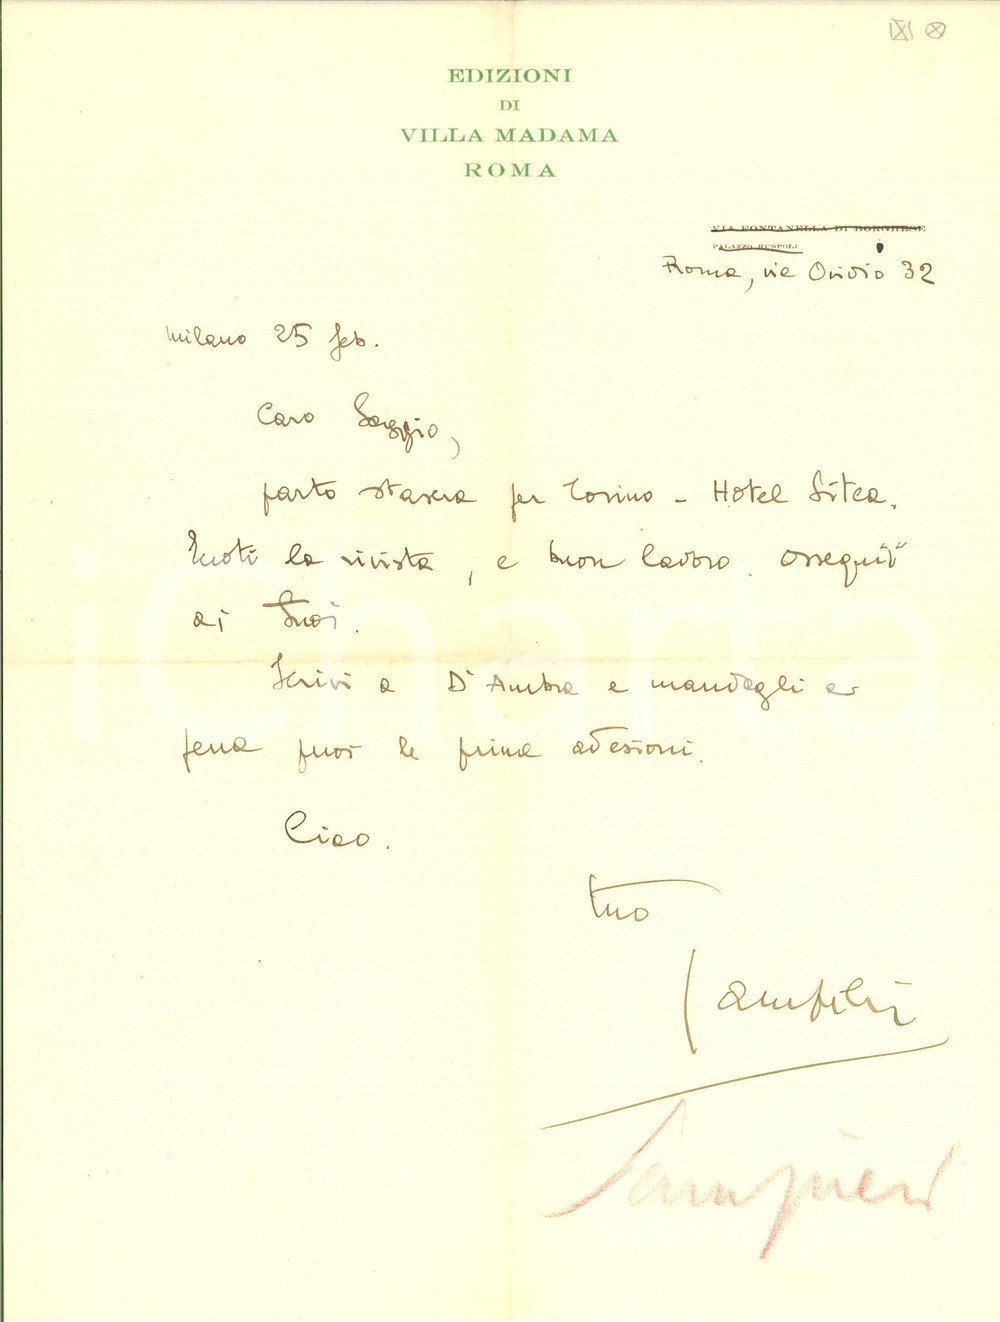 EDIZIONI
DI
VILLA MADAMA
ROMA
VIA FONTANELLA DI BORGHESE
PALAZZO RUSPOLI
Roma, via Ovidio 32
Milano 25 feb.
Caro Saggio,
parto stasera per Torino - Hotel Sitea.
la rivista, e buon lavoro. Ossequii
ai Tuoi.
Scrivi a D'Ambra e mandagli ap
pena puoi le prime adesioni.
Ciao.
tuo
Sampieri
iCharta